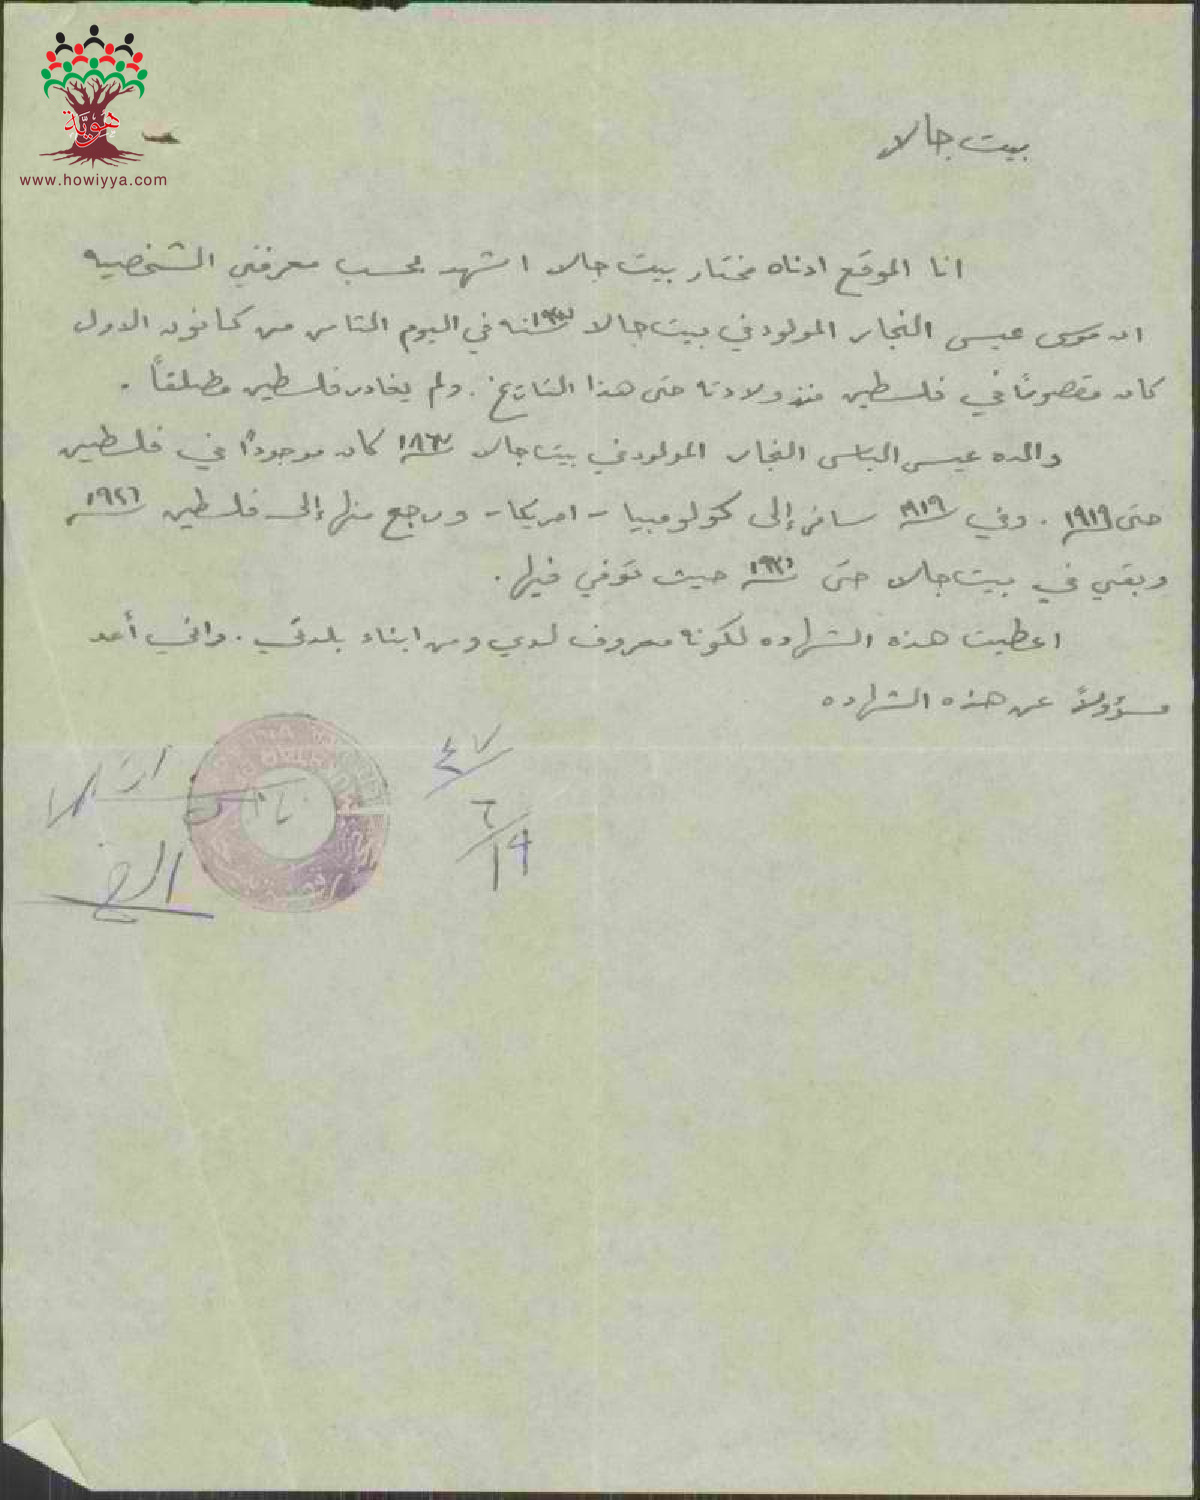 هوية
www.howiyya.com
بيت جالا
انا الموقع ادناه مختار بيت جالا اشهد بحسب معرفتي الشخصيه
ان موسى عيسى النجار المولود في بيت جالا سنة في اليوم الثامن من كانون الاول
كان مقيماً في فلسطين منذ ولادته حتى هذا التاريخ . ولم يغادر فلسطين مطلقاً .
والده عيسى الياس النجار المولود في بيت جالا سنة ١٨٦٧ كان موجوداً في فلسطين
حتى سنة ١٩١٩ . وفي سنة ١٩١٩ سافر إلى كولومبيا - امريكا - ورجع منها إلى فلسطين سنة ١٩٢٦
وبقي في بيت جالا حتى سنة حيث توفي فيها .
اعطيت هذه الشهاده لكونه معروف لدي ومن ابناء بلدتي . واني أعد
مسؤولاً عن هذه الشهاده